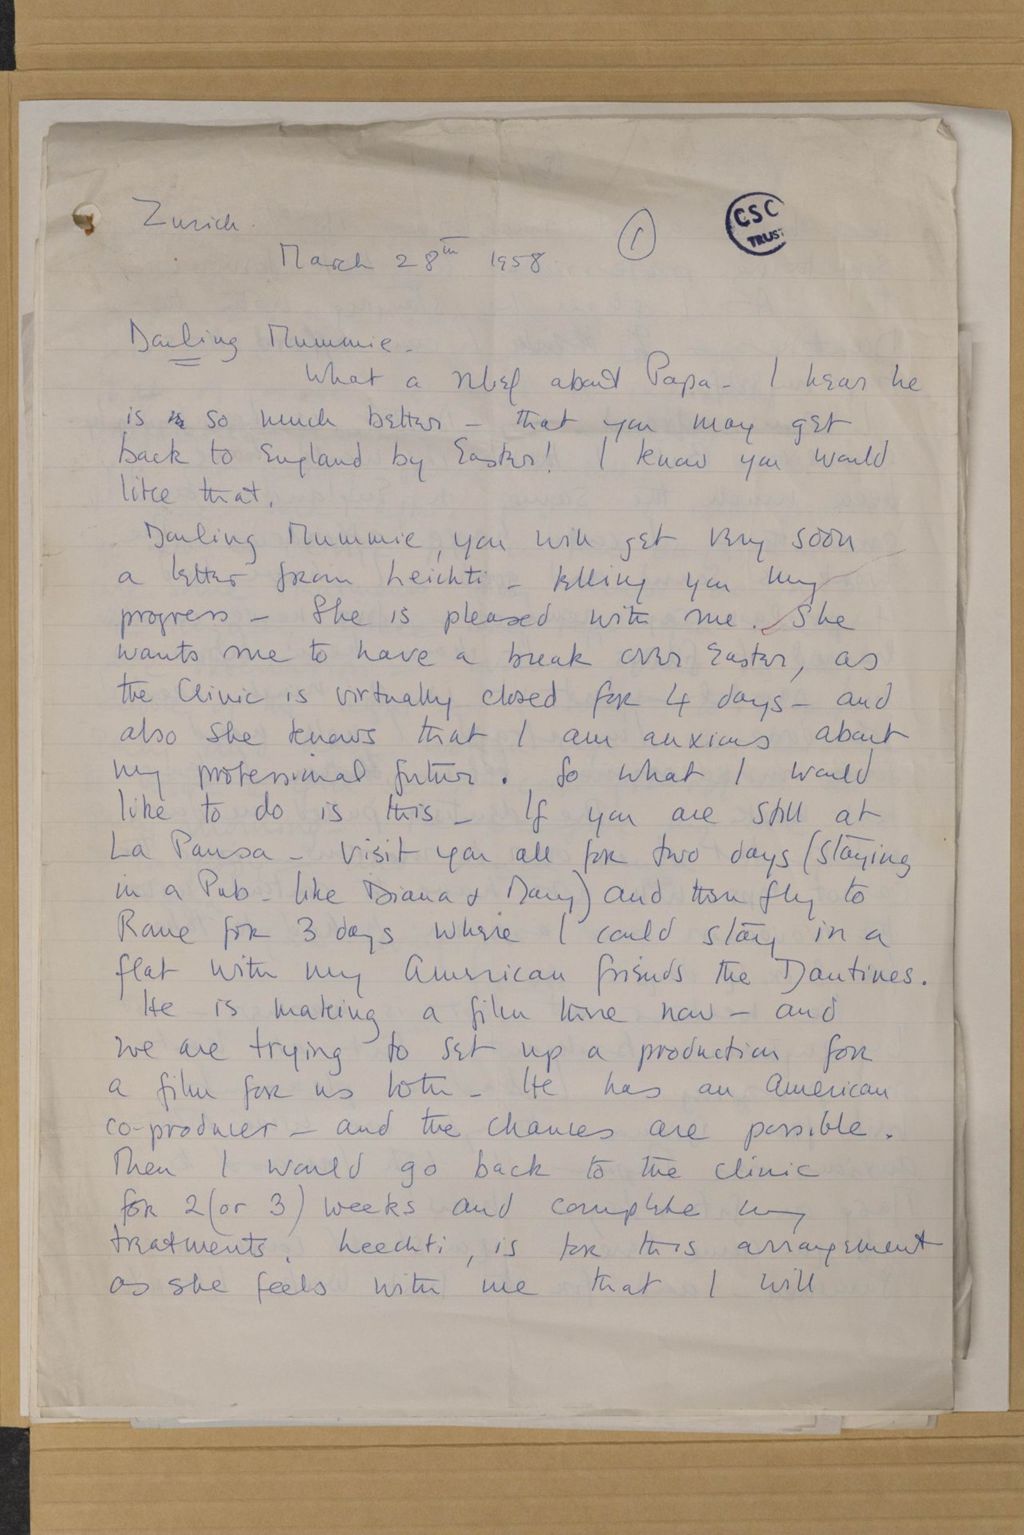 Zurich.
①
CSC
TRUST
March 28th 1958
Darling Mummie.
What a relief about Papa - I hear he
is so much better - that you may get
back to England by Easter! I know you would
like that.
Darling Mummie, you will get very soon
a letter from Leichti - telling you my
progress - She is pleased with me. She
wants me to have a break over Easter, as
the Clinic is virtually closed for 4 days - and
also she knows that I am anxious about
my professional future. So what I would
like to do is this - If you are still at
La Pausa - visit you all for two days (staying
in a Pub - like Diana & Mary) and then fly to
Rome for 3 days where I could stay in a
flat with my American friends the Dantines.
He is making a film there now - and
we are trying to set up a production for
a film for us both - He has an American
co-producer - and the chances are possible.
Then I would go back to the clinic
for 2 (or 3) weeks and complete my
treatments. Leechti, is for this arrangement
as she feels with me that I will